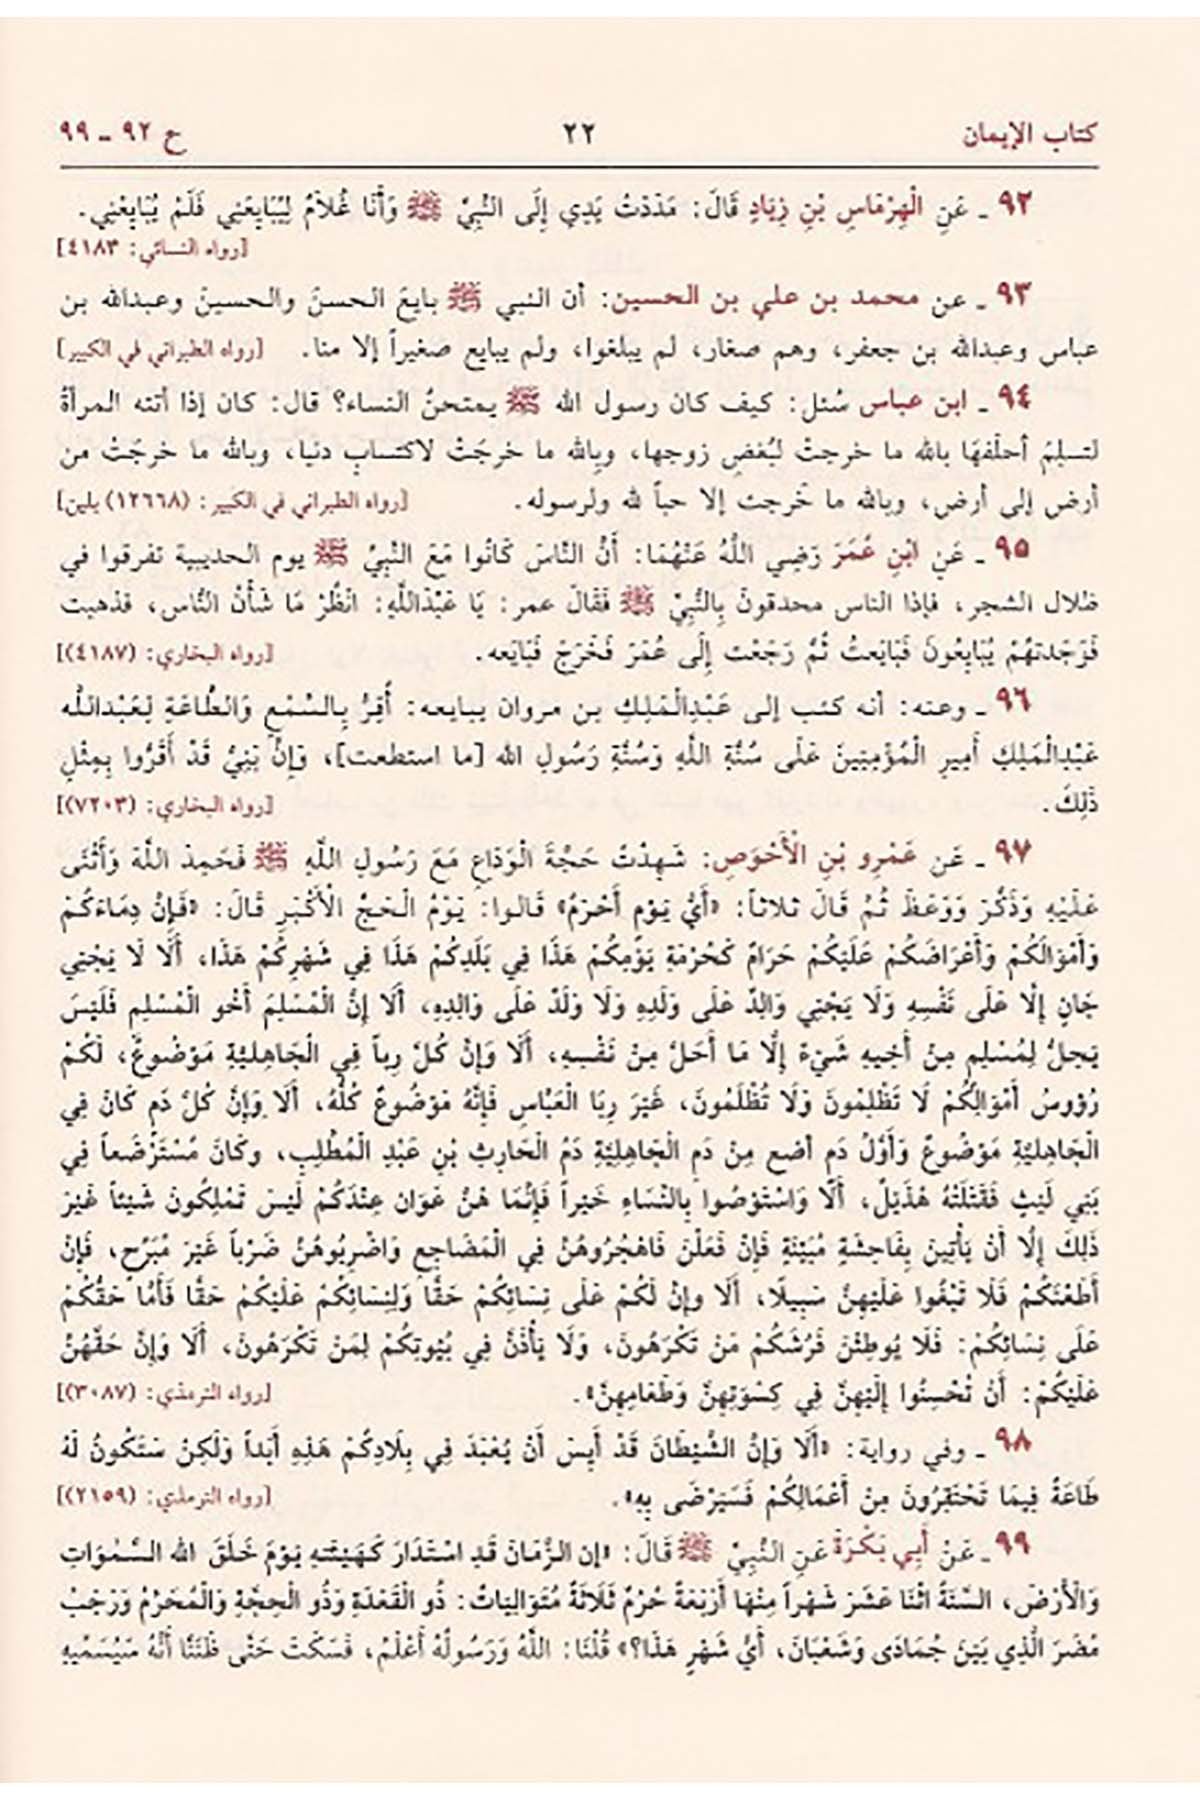 كتاب الإيمان ٢٢ ح ٩٢ ـ ٩٩
٩٢ ـ عَنِ الْهِرْمَاسِ بْنِ زِيَادٍ قَالَ: مَدَدْتُ يَدِي إِلَى النَّبِيِّ ﷺ وَأَنَا غُلاَمٌ لِيُبَايِعَنِي فَلَمْ يُبَايِعْنِي.
[رواه النسائي: ٤١٨٣]
٩٣ ـ عن محمد بن علي بن الحسين: أن النبي ﷺ بايعَ الحسنَ والحسينَ وعبدالله بن
عباس وعبدالله بن جعفر، وهم صغار، لم يبلغوا، ولم يبايع صغيراً إلا منا. [رواه الطبراني في الكبير]
٩٤ ـ ابن عباس سُئل: كيف كان رسول الله ﷺ يمتحنُ النساء؟ قال: كان إذا أتته المرأةُ
لتسلِمَ أحلَفهَا بالله ما خرجتْ لبُغضِ زوجها، وبِالله ما خرجَتْ لاكتسابِ دنيا، وبالله ما خرجَتْ من
أرض إلى أرض، وبالله ما خرجت إلا حباً لله ولرسوله. [رواه الطبراني في الكبير: (١٢٦٦٨) بلين]
٩٥ ـ عَنِ ابْنِ عُمَرَ رَضِيَ اللَّهُ عَنْهُمَا: أَنَّ النَّاسَ كَانُوا مَعَ النَّبِيِّ ﷺ يوم الحديبية تفرقوا في
ظلال الشجر، فإذا الناس محدقونَ بِالنَّبِيِّ ﷺ فَقَالَ عمر: يَا عَبْدَاللَّهِ: انْظُرْ مَا شَأْنُ النَّاسِ، فذهبت
فَوَجَدتهُمْ يُبَايِعُونَ فَبَايَعتُ ثُمَّ رَجَعْت إِلَى عُمَرَ فَخَرَجَ فَبَايَعه. [رواه البخاري: (٤١٨٧)]
٩٦ ـ وعنه: أنه كتب إلى عَبْدِالْمَلِكِ بن مروان يبايعه: أُقِرُّ بِالسَّمْعِ وَالطَّاعَةِ لِعَبْدِاللَّه
عَبْدِالْمَلِكِ أَمِيرِ الْمُؤْمِنِينَ عَلَى سُنَّةِ اللَّهِ وَسُنَّةِ رَسُولِ الله [ما استطعت]، وَإِنَّ بَنِيَّ قَدْ أَقَرُّوا بِمِثْلِ
ذَلِكَ. [رواه البخاري: (٧٢٠٣)]
٩٧ ـ عَن عَمْرِو بْنِ الْأَحْوَصِ: شَهِدْتُ حَجَّةَ الْوَدَاعِ مَعَ رَسُولِ اللَّهِ ﷺ فَحَمِدَ اللَّهَ وَأَثْنَى
عَلَيْهِ وَذَكَّرَ وَوَعَظَ ثُمَّ قَالَ ثلاثاً: «أَيُّ يَوْمٍ أَحْرَمُ» قَالوا: يَوْمُ الحَجِّ الْأَكْبَرِ قَالَ: «فَإِنَّ دِمَاءَكُمْ
وَأَمْوَالَكُمْ وَأَعْرَاضَكُمْ عَلَيْكُمْ حَرَامٌ كَحُرْمَةِ يَوْمِكُمْ هَذَا فِي بَلَدِكُمْ هَذَا فِي شَهْرِكُمْ هَذَا، أَلَا لَا يَجْنِي
جَانٍ إِلَّا عَلَى نَفْسِهِ وَلَا يَجْنِي وَالِدٌ عَلَى وَلَدِهِ وَلَا وَلَدٌ عَلَى وَالِدِهِ، أَلَا إِنَّ الْمُسْلِمَ أَخُو الْمُسْلِمِ فَلَيْسَ
يَحِلُّ لِمُسْلِمٍ مِنْ أَخِيهِ شَيْءٌ إِلَّا مَا أَحَلَّ مِنْ نَفْسِهِ، أَلَا وَإِنَّ كُلَّ رِباً فِي الْجَاهِلِيَّةِ مَوْضُوعٌ، لَكُمْ
رُؤوسُ أَمْوَالِكُمْ لَا تَظْلِمُونَ وَلَا تُظْلَمُونَ، غَيْرَ رِبَا الْعَبَّاسِ فَإِنَّهُ مَوْضُوعٌ كُلُّهُ، أَلَا وَإِنَّ كُلَّ دَمٍ كَانَ فِي
الْجَاهِلِيَّةِ مَوْضُوعٌ وَأَوَّلُ دَمٍ أضع مِنْ دَمِ الْجَاهِلِيَّةِ دَمُ الْحَارِثِ بْنِ عَبْدِ الْمُطَّلِبِ، وكَانَ مُسْتَرْضَعاً فِي
بَنِي لَيْثٍ فَقَتَلَتْهُ هُذَيْلٌ، أَلَا وَاسْتَوْصُوا بِالنِّسَاءِ خَيْراً فَإِنَّمَا هُنَّ عَوَانٍ عِنْدَكُمْ لَيْسَ تَمْلِكُونَ شَيْئاً غَيْرَ
ذَلِكَ إِلَّا أَنْ يَأْتِينَ بِفَاحِشَةٍ مُبَيِّنَةٍ فَإِنْ فَعَلْنَ فَاهْجُرُوهُنَّ فِي الْمَضَاجِعِ وَاضْرِبُوهُنَّ ضَرْباً غَيْرَ مُبَرِّحٍ، فَإِنْ
أَطَعْنَكُمْ فَلَا تَبْغُوا عَلَيْهِنَّ سَبِيلًا، أَلَا وإِنَّ لَكُمْ عَلَى نِسَائِكُمْ حَقًّا وَلِنِسَائِكُمْ عَلَيْكُمْ حَقًّا فَأَمَّا حَقُّكُمْ
عَلَى نِسَائِكُمْ: فَلَا يُوطِئْنَ فُرُشَكُمْ مَنْ تَكْرَهُونَ، وَلَا يَأْذَنَّ فِي بُيُوتِكُمْ لِمَنْ تَكْرَهُونَ، أَلَا وَإِنَّ حَقَّهُنَّ
عَلَيْكُمْ: أَنْ تُحْسِنُوا إِلَيْهِنَّ فِي كِسْوَتِهِنَّ وَطَعَامِهِنَّ». [رواه الترمذي: (٣٠٨٧)]
٩٨ ـ وفي رواية: «أَلَا وَإِنَّ الشَّيْطَانَ قَدْ أَيِسَ أَنْ يُعْبَدَ فِي بِلَادِكُمْ هَذِهِ أَبَداً وَلَكِنْ سَتَكُونُ لَهُ
طَاعَةٌ فِيمَا تَحْتَقِرُونَ مِنْ أَعْمَالِكُمْ فَسَيَرْضَى بِهِ». [رواه الترمذي: (٢١٥٩)]
٩٩ ـ عَنْ أَبِي بَكْرَةَ عَنِ النَّبِيِّ ﷺ قَالَ: «إن الزَّمَانَ قَدِ اسْتَدَارَ كَهَيْئَتِهِ يَوْمَ خَلَقَ الله السَّمَوَاتِ
وَالْأَرْضَ، السَّنَةُ اثْنَا عَشَرَ شَهْراً مِنْهَا أَرْبَعَةٌ حُرُمٌ ثَلَاثَةٌ مُتَوَالِيَاتٌ: ذُو الْقَعْدَةِ وَذُو الْحِجَّةِ وَالْمُحَرَّمُ وَرَجَبُ
مُضَرَ الَّذِي بَيْنَ جُمَادَى وَشَعْبَانَ، أَيُّ شَهْرٍ هَذَا؟» قُلْنَا: اللَّهُ وَرَسُولُهُ أَعْلَمُ، فَسَكَتَ حَتَّى ظَنَنَّا أَنَّهُ سَيُسَمِّيهِ